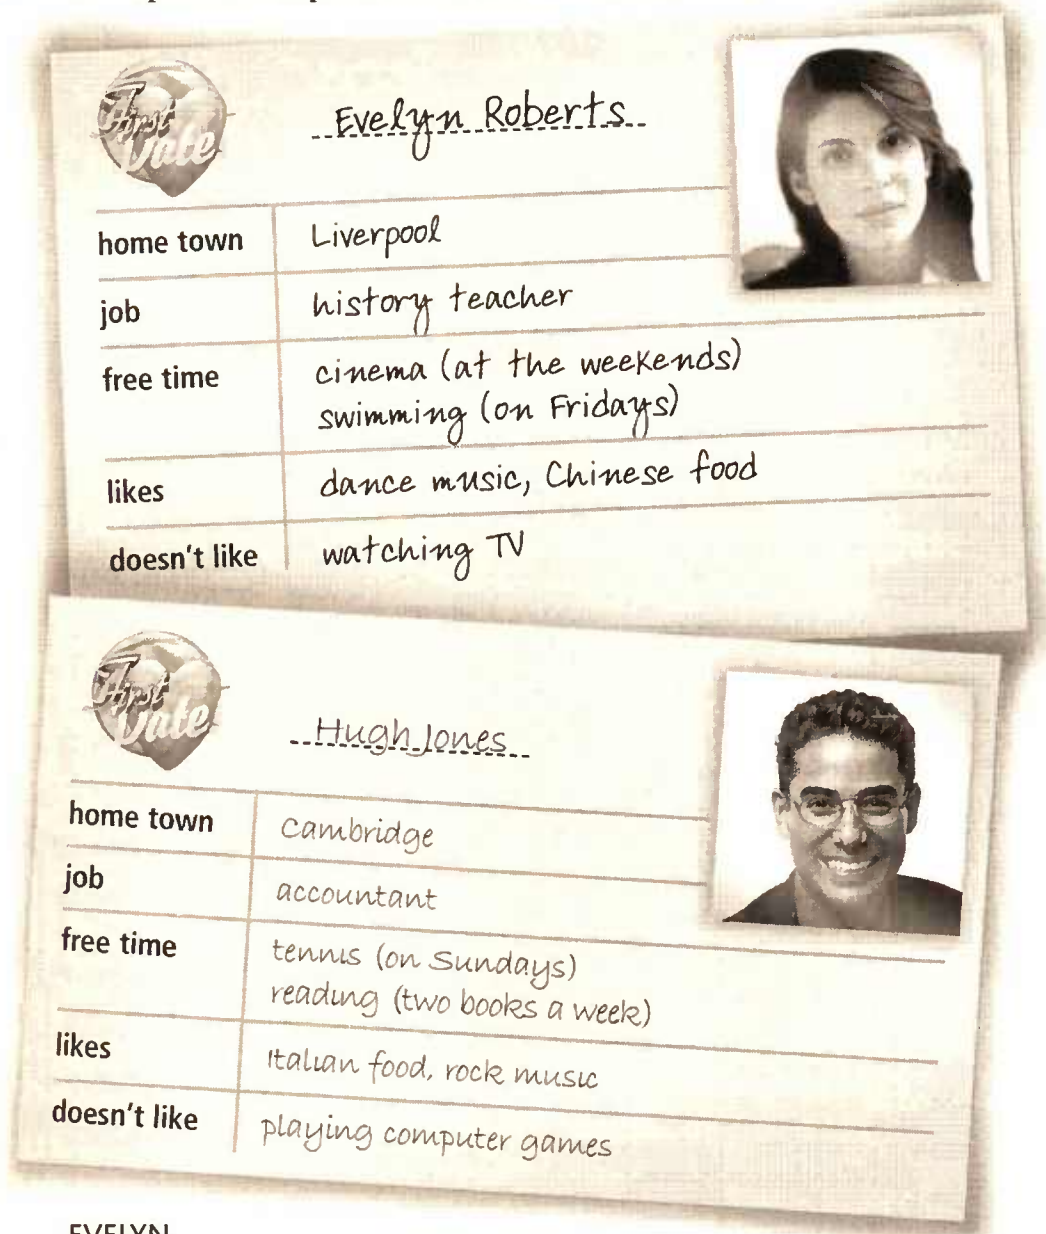 First Date
Evelyn Roberts
home town Liverpool
job history teacher
free time cinema (at the weekends)
swimming (on Fridays)
likes dance music, Chinese food
doesn't like watching TV
First Date
Hugh Jones
home town Cambridge
job accountant
free time tennis (on Sundays)
reading (two books a week)
likes Italian food, rock music
doesn't like playing computer games
EVELYN